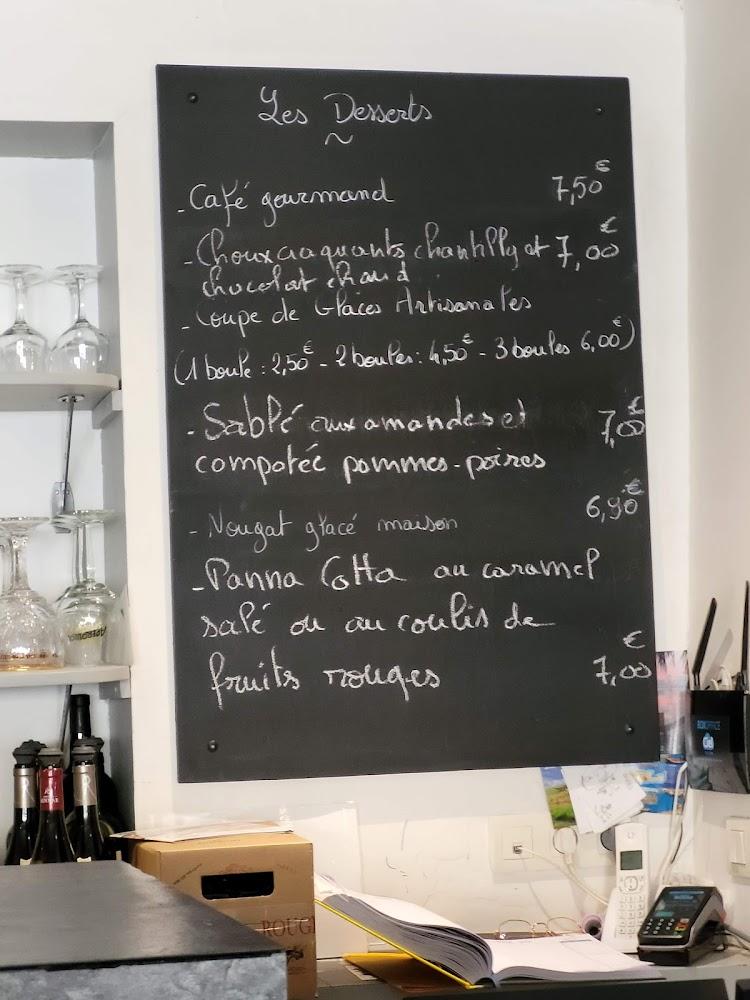 Les Desserts
~
- Café gourmand 7,50€
- Choux craquants chantilly et 7,00€
chocolat chaud
- Coupe de Glaces Artisanales
(1 boule : 2,50€ - 2 boules : 4,50€ - 3 boules 6,00€)
- Sablé aux amandes et 7,00€
compotée pommes-poires
- Nougat glacé maison 6,90€
- Panna Cotta au caramel
salé ou au coulis de
fruits rouges 7,00€
ROUG